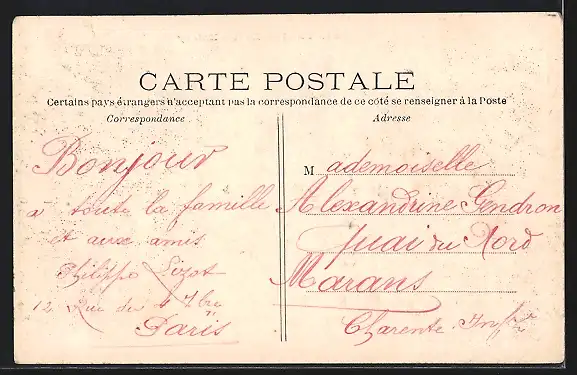 CARTE POSTALE
Certains pays étrangers n'acceptant pas la correspondance de ce côté se renseigner à la Poste
Correspondance
Bonjour
a toute la famille
et aux amis
Philippe
12 Rue du 4 7bre
Paris
Adresse
Mademoiselle
Alexandrine Gendron
Quai du Nord
Marans
Charente Infre